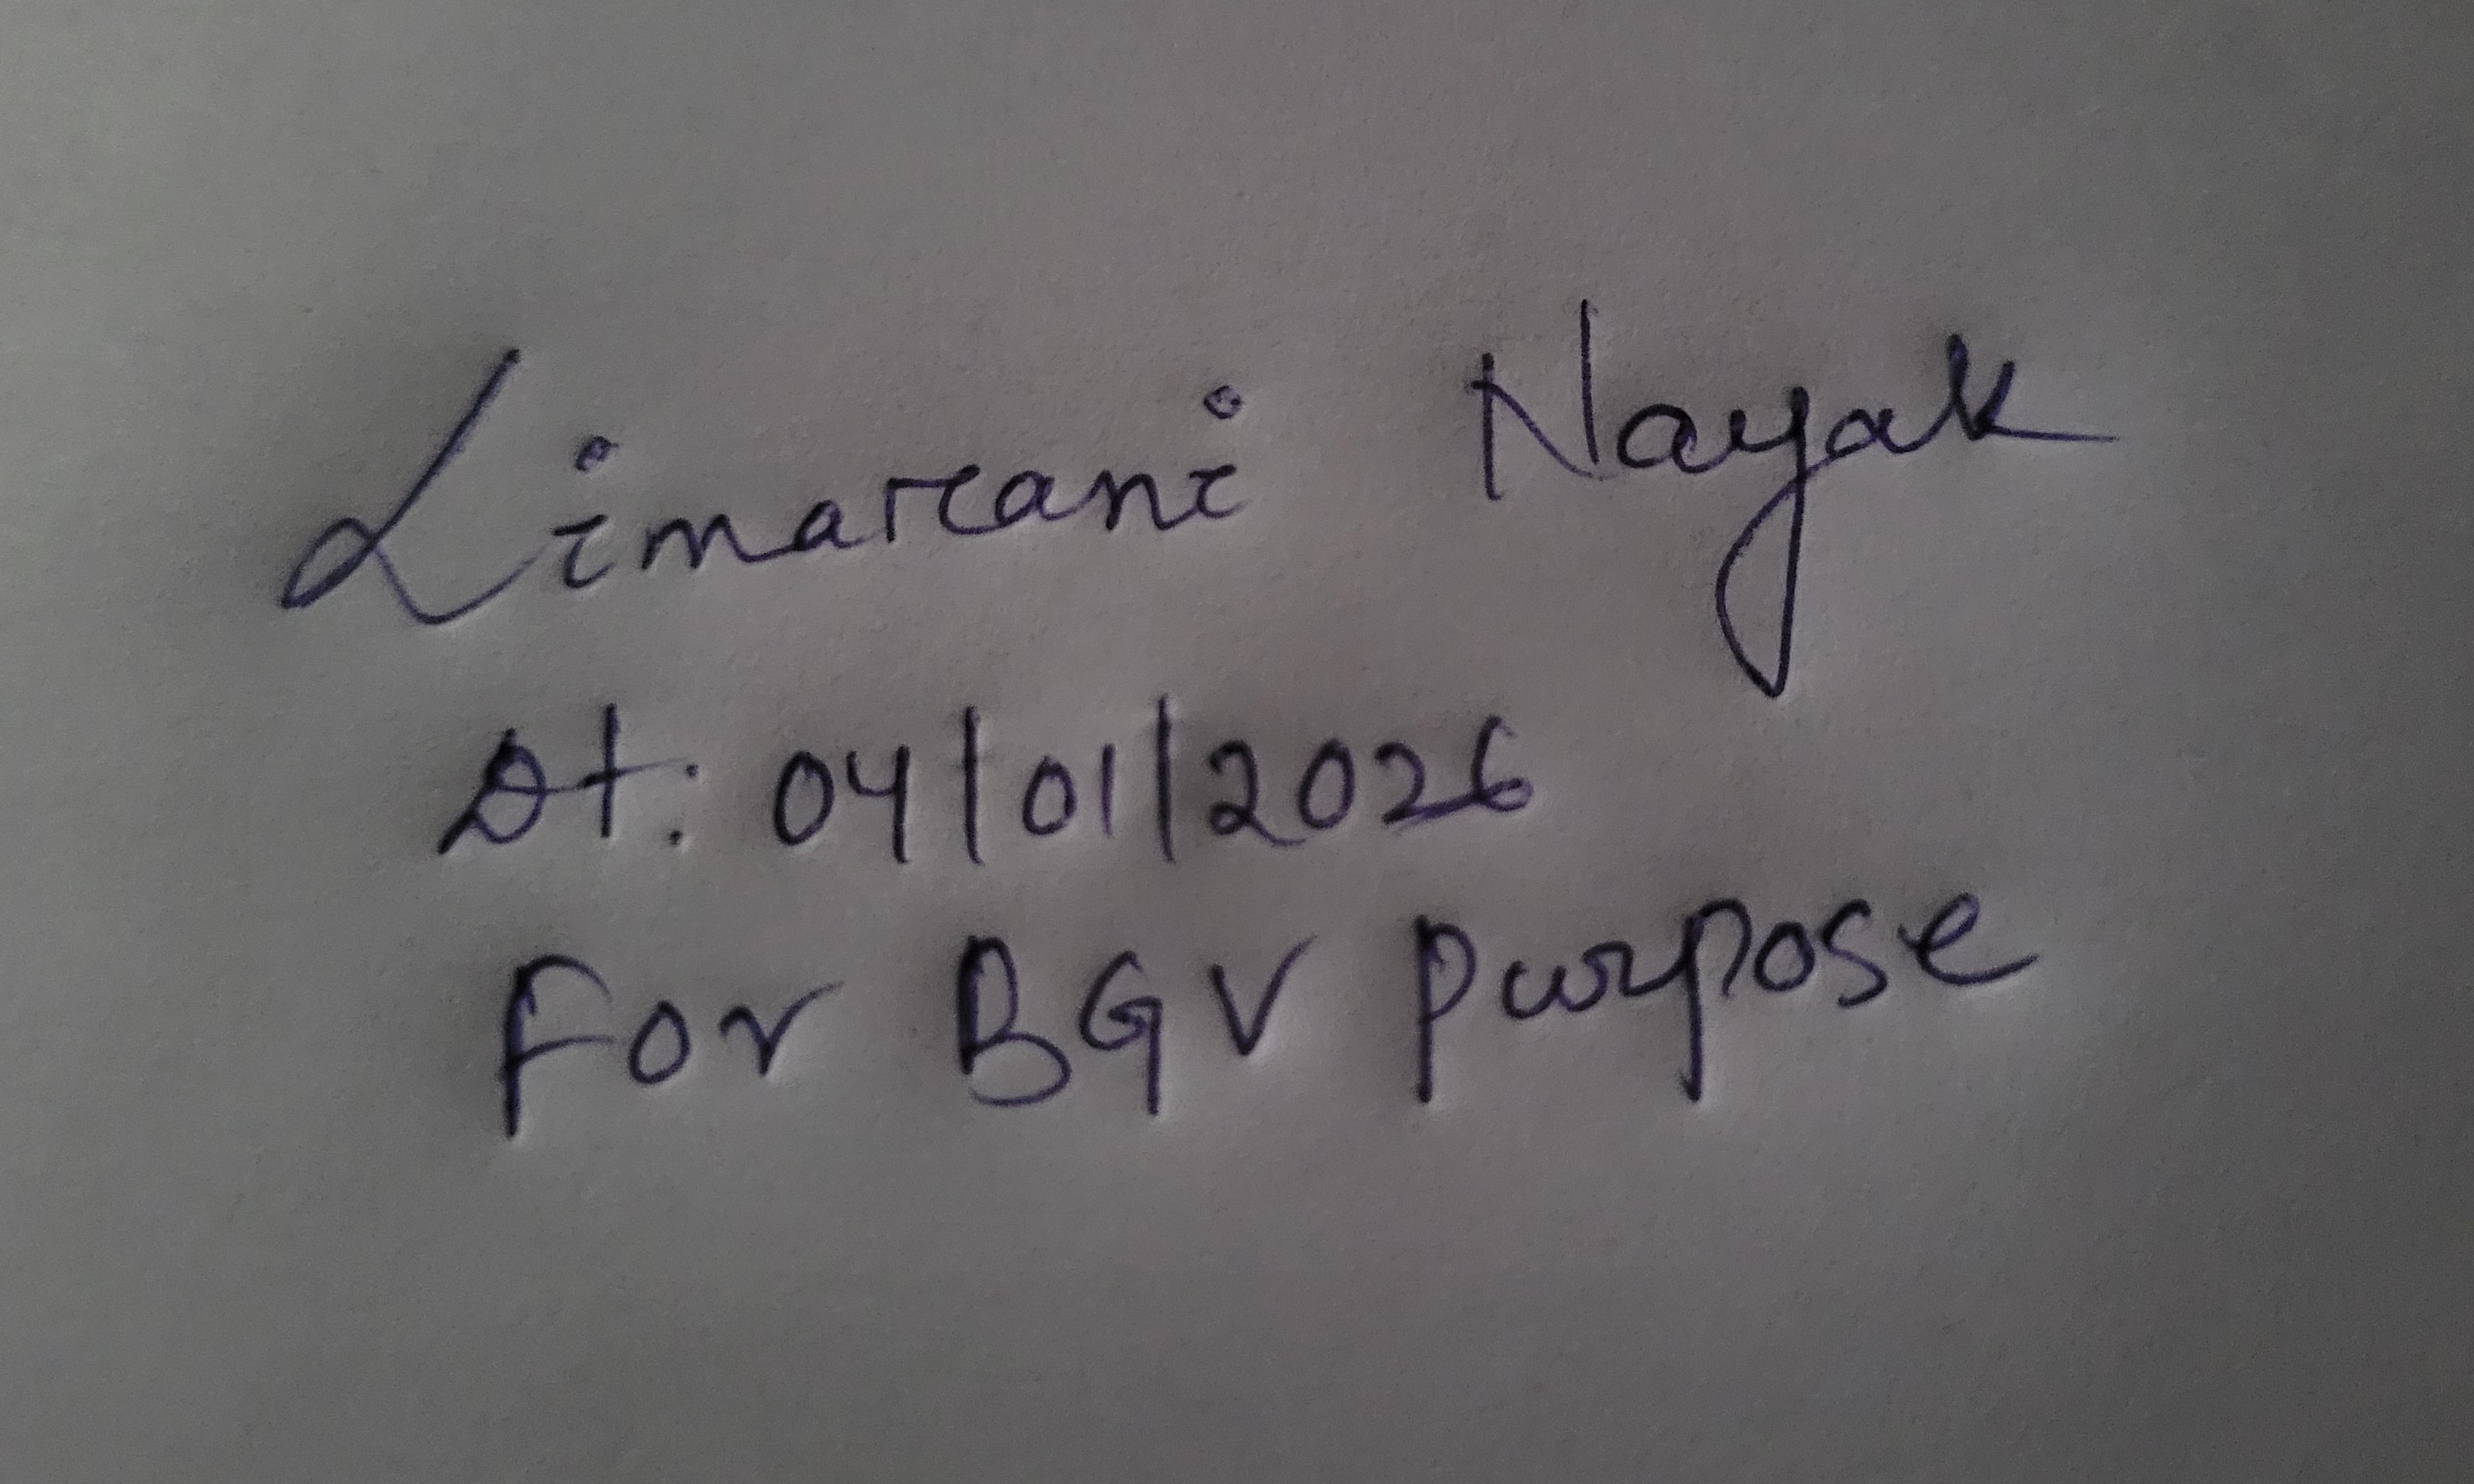 Limarani Nayak
Dt: 04/01/2026
For BGV Purpose